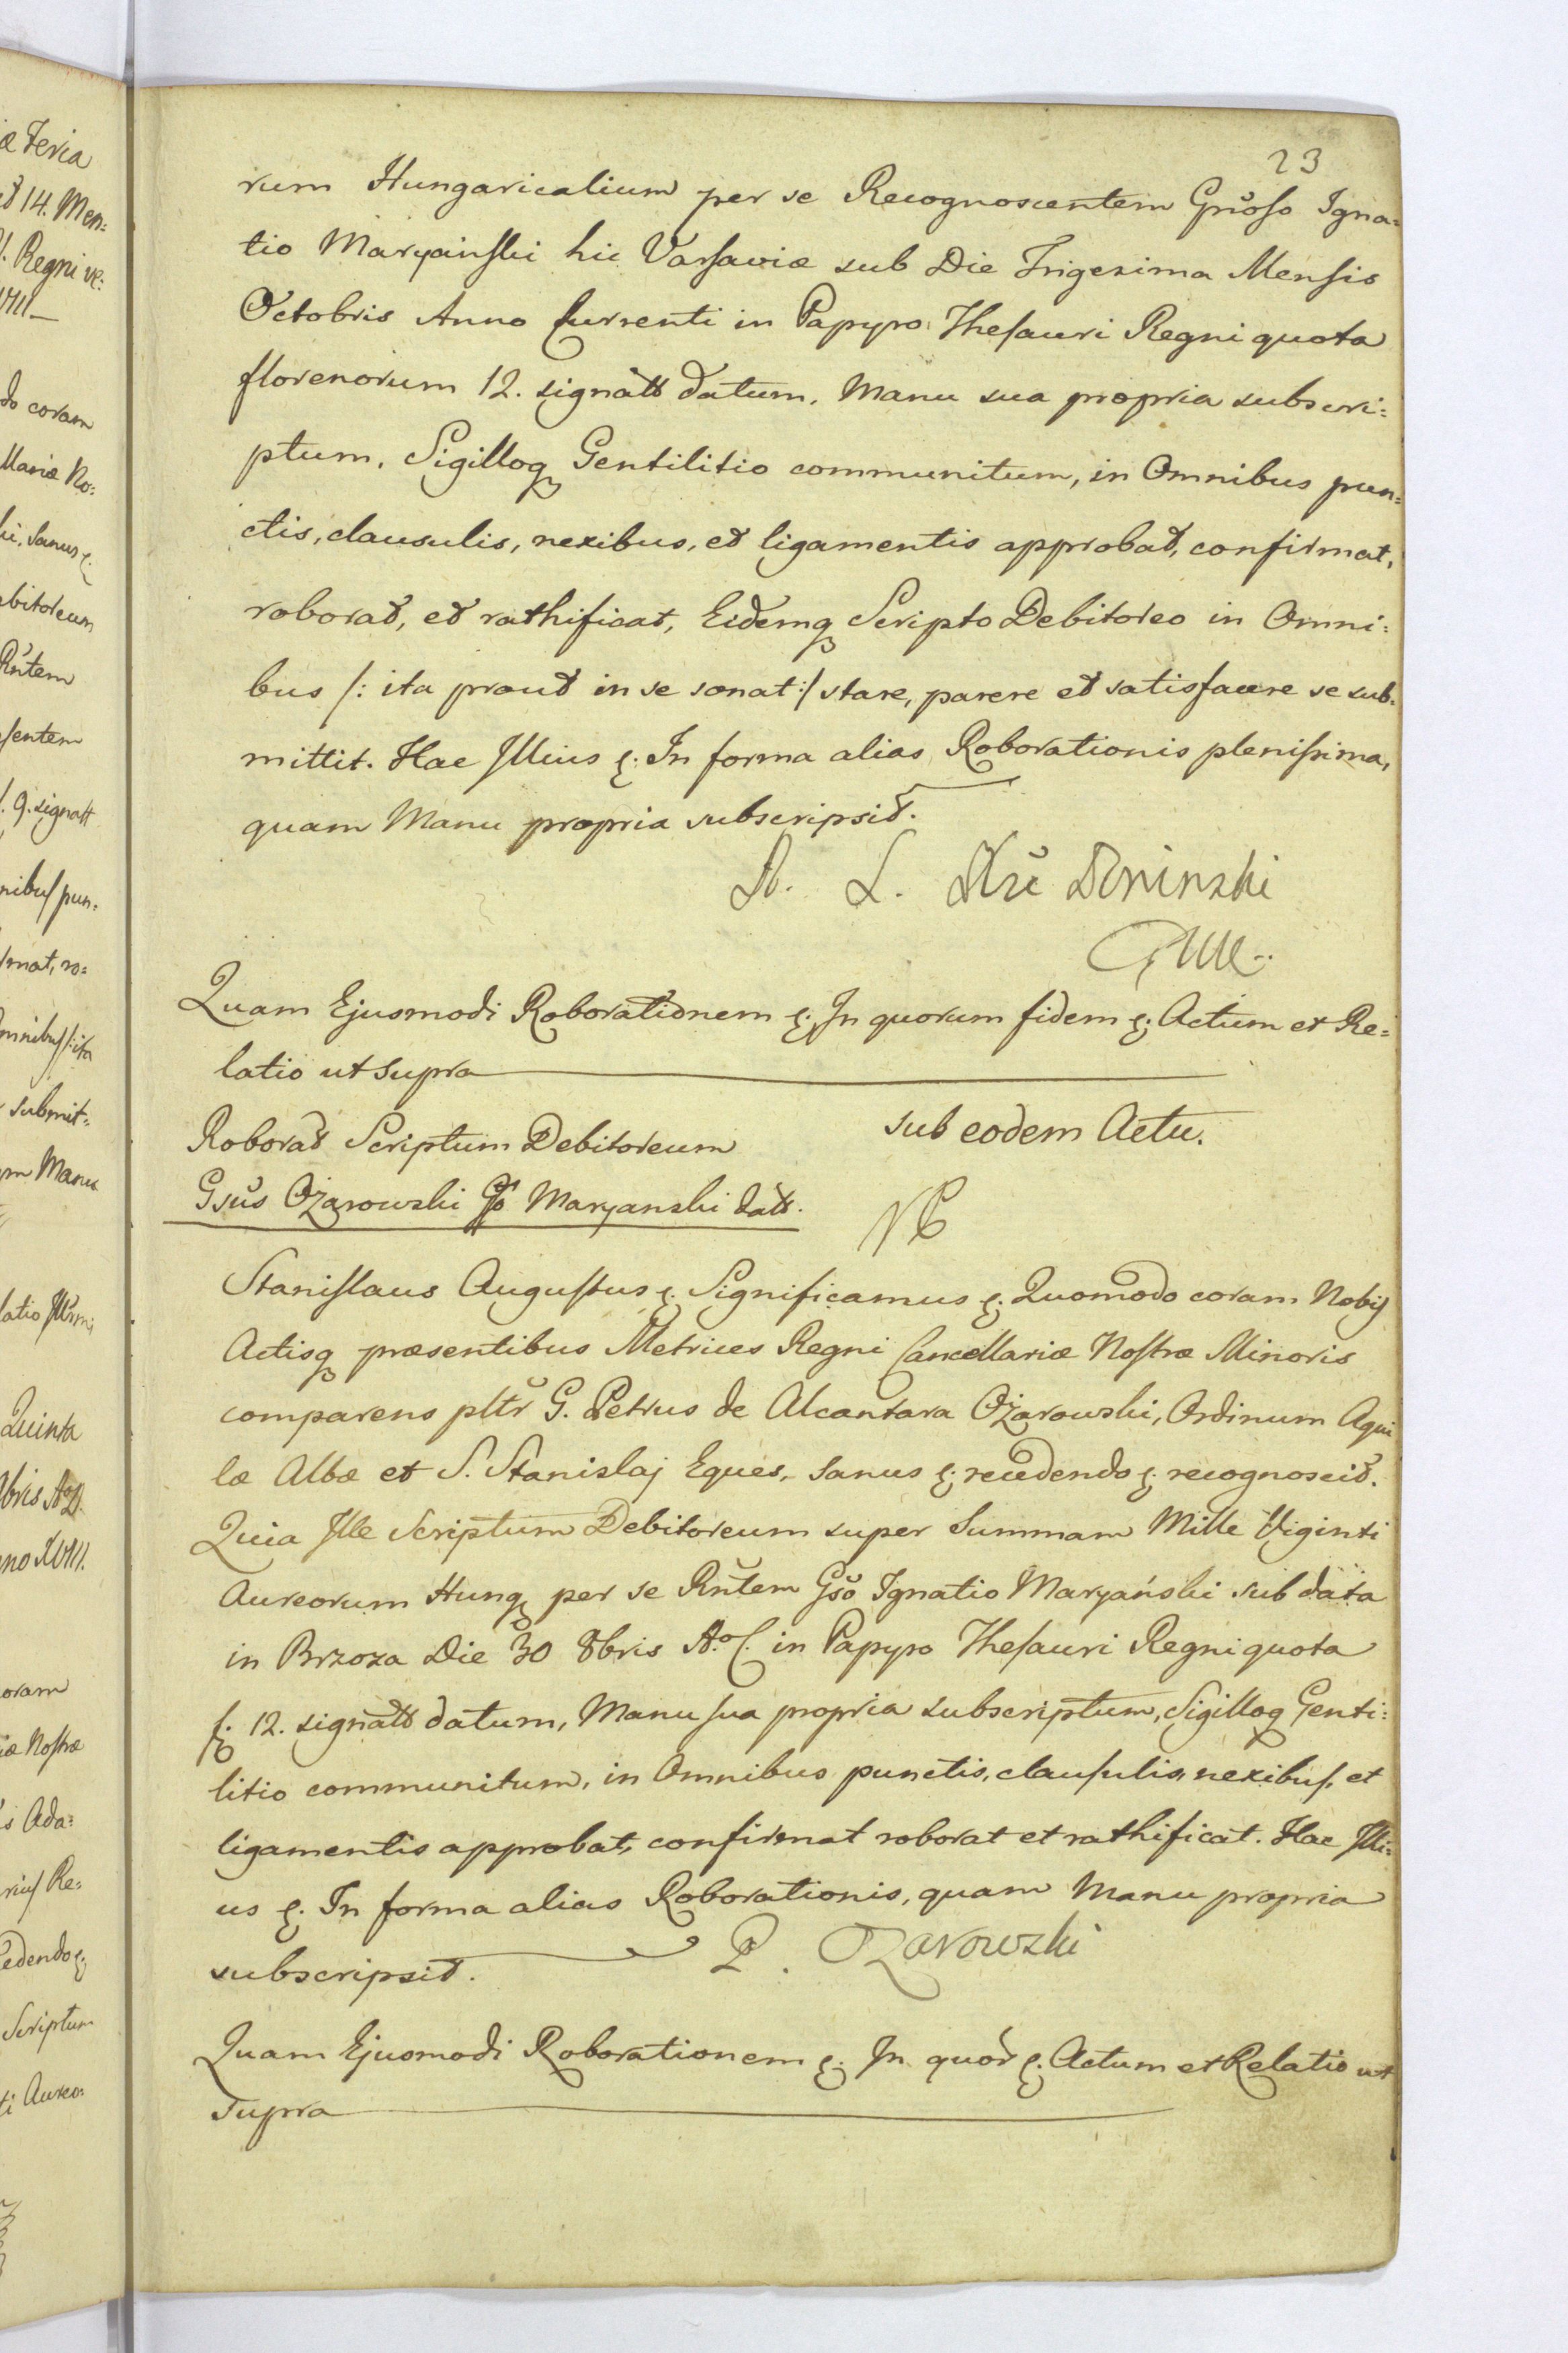 23
rum Hungaricalium per se Recognoscentem Gnŏso Igna=
tio Maryański hic Varsaviæ sub Die Trigesima Mensis
Octobris Anno Currenti in Papyro Thesauri Regni quota
florenorum 12. signatt datum, Manu sua propria subscri=
ptum, Sigilloq Gentilitio communitum, in Omnibus pun=
ctis, clausulis, nexibus, et ligamentis approbat, confirmat,
roborat, et rathificat, Eidemq Scripto Debitoreo in Omni=
bus /: ita prout in se sonat :/ stare, parere et satisfacere se sub=
mittit. Hac Illius &. In forma alias Roborationis plenissima,
quam Manu propria subscripsit.
A. L. Xże Poninski
Quam Ejusmodi Roborationem &. In quorum fidem &. Actum et Re=
latio ut supra
Roborat Scriptum Debitoreum
sub eodem Actu.
Gsŭs Ożarowski Gso Maryanski datt.
Stanislaus Augustus &. Significamus &. Quomodo coram Nobis
Actisq præsentibus Metrices Regni Cancellariæ Nostræ Minoris
comparens pltr G. Petrus de Alcantara Ożarowski, Ordinum Aqui
læ Albæ et S. Stanislaj Eques, Sanus &. recedendo &. recognoscit.
Quia Ille Scriptum Debitoreum super Summam Mille Viginti
Aureorum Hung per se Rňtem Gsŏ Ignatio Maryański sub data
in Brzoza Die 30 8bris A.o C. in Papyro Thesauri Regni quota
f. 12. signatt datum, Manu sua propria subscriptum, Sigilloq Genti=
litio communitum, in Omnibus punctis, clausulis, nexibus, et
ligamentis approbat, confirmat roborat et rathificat. Hac Illi=
us &. In forma alias Roborationis, quam Manu propria
subscripsit. P. Ożarowski
Quam Ejusmodi Roborationem &. In quor &. Actum et Relatio ut
supra